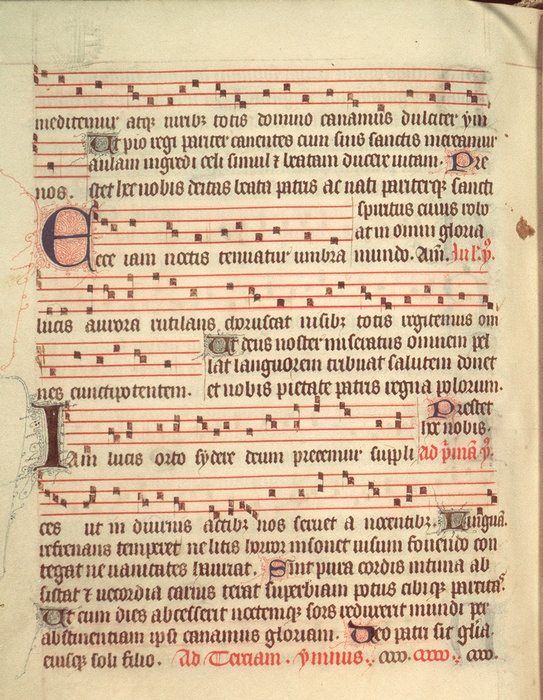 meditemur atq; virib; totis domino canamus dulciter ym
Ut pio regi pariter canentes cum suis sanctis mereamur
aulam ingredi celi simul ⁊ beatam ducere vitam. Pre
nos. stet hec nobis deitas beata patris ac nati pariterq; sancti
spiritus cuius
at in omni gloria
Ecce iam noctis tenuatur umbra mundo. Am.
lucis aurora rutilans choruscat nisib; totis rogitemus om
Ut deus noster miseratus omnem pel
lat languorem tribuat salutem donet
nes cunctipotentem. et nobis pietate patris regna polorum.
Prestet
hec nobis.
Iam lucis orto sydere deum precemur suppli Ad p̄mā ẏ.
ces ut in diurnis actib; nos servet a nocentib;. Linguā.
refrenans temperet ne litis horror insonet visum fovendo con
tegat ne vanitates hauriat. Sint pura cordis intima ab
sistat ⁊ vecordia carnis terat superbiam potus cibiq; parcitas
Ut cum dies abcesserit noctemq; sors reduxerit mundi per
abstinentiam ipsi canamus gloriam. Deo patri sit glīa
eiusq; soli filio. Ad Terciam. ẏmnus.